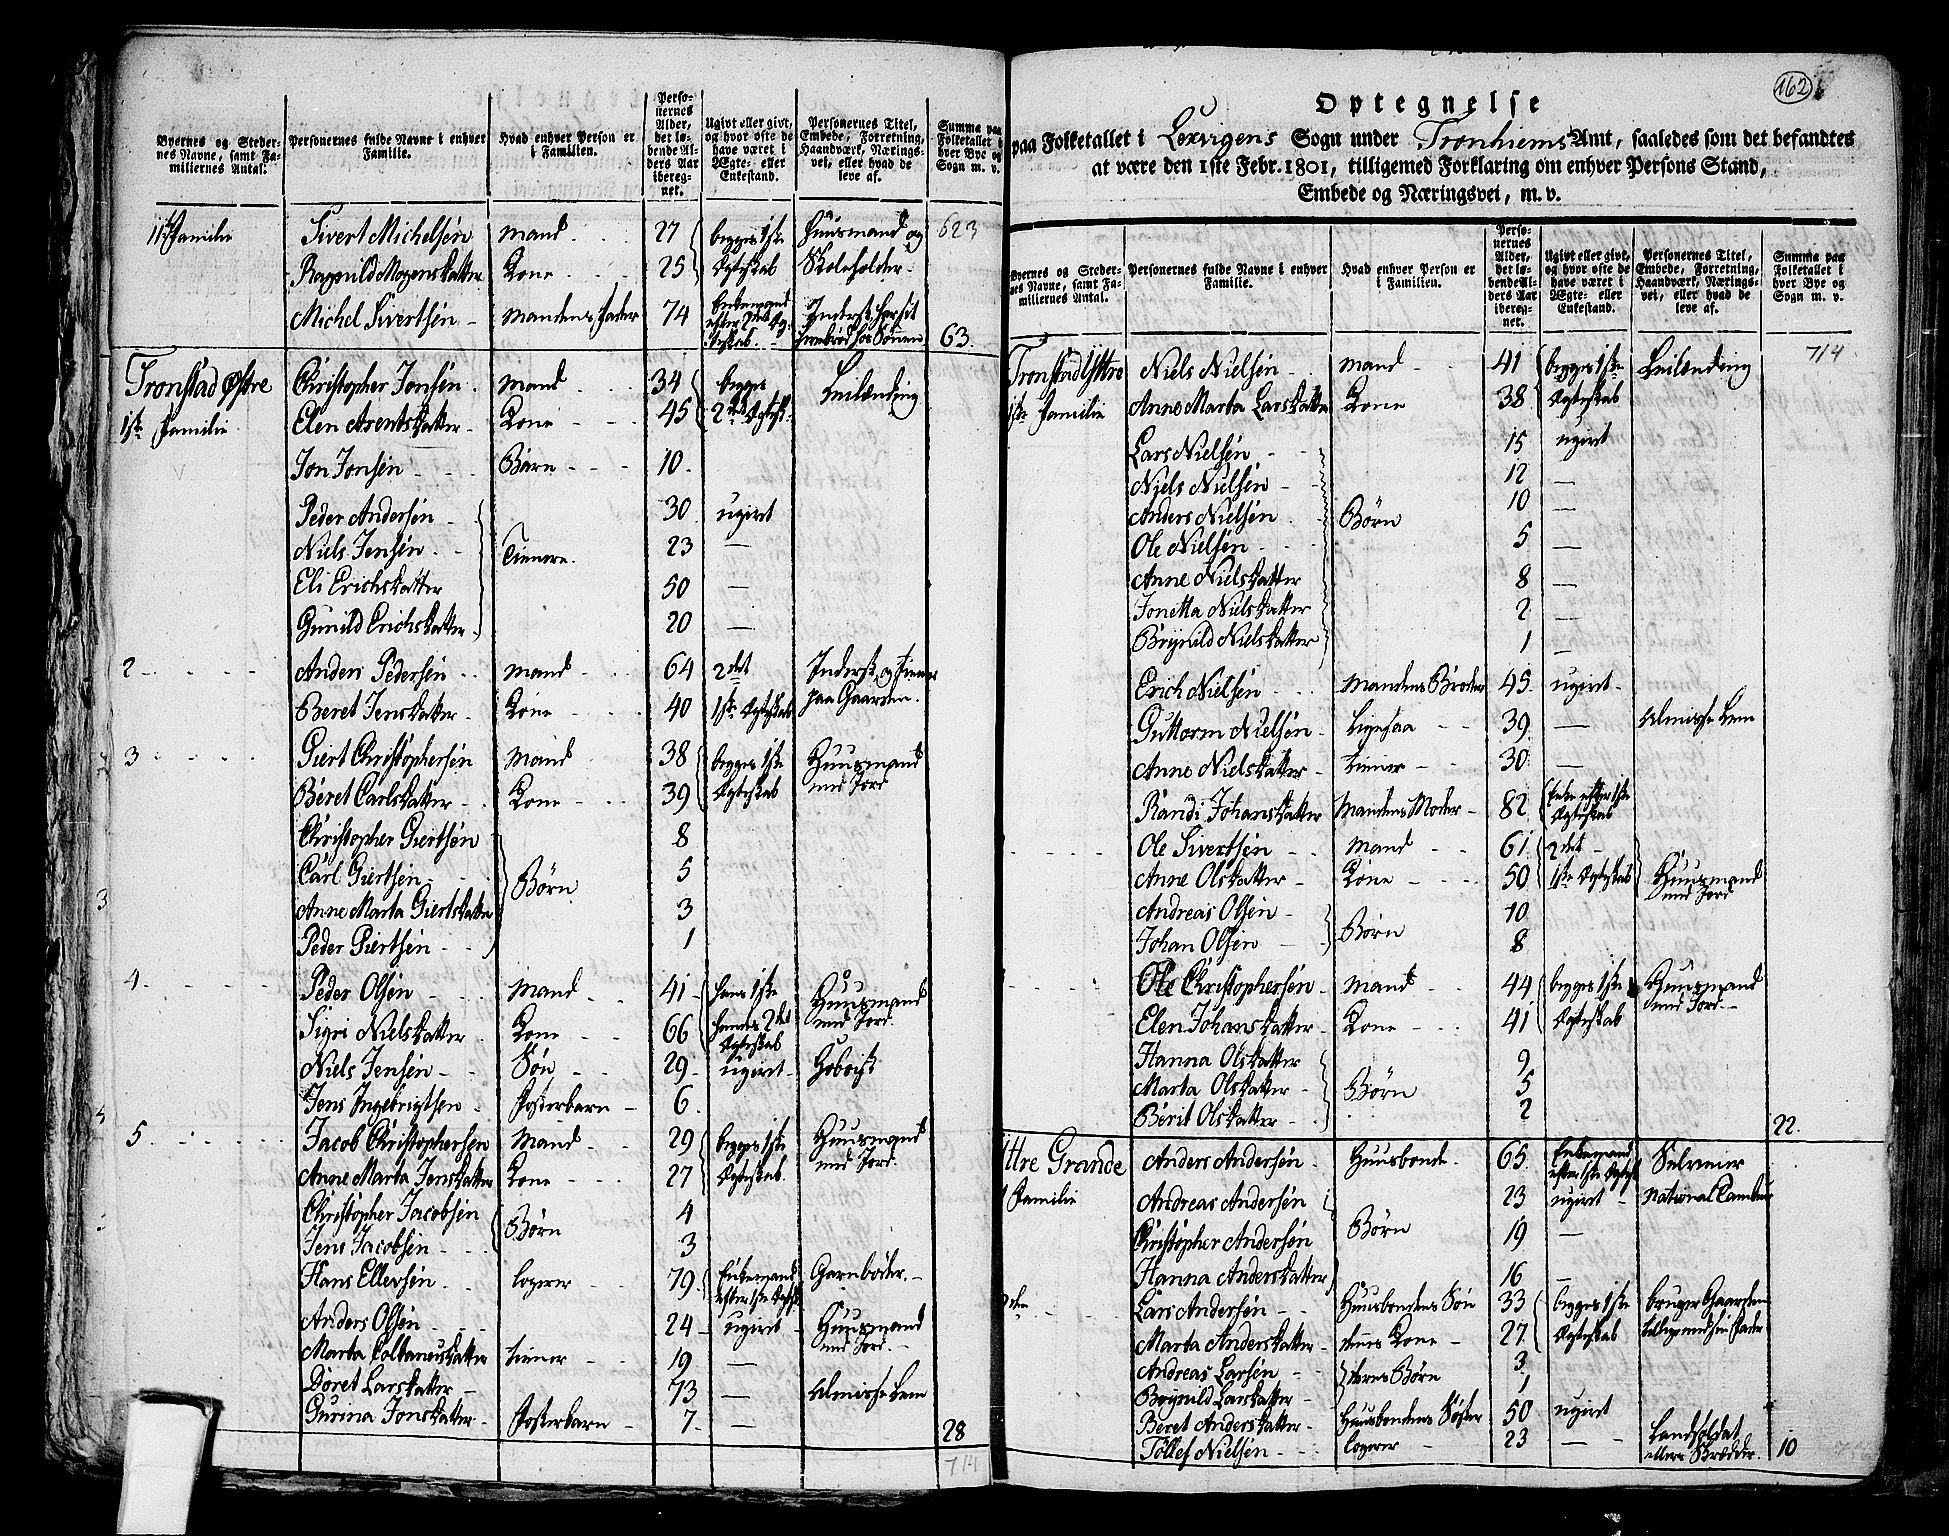 Byernes og Steder-
nes Navne, samt Fa-
miliernes Antal.
Personernes fulde Navne i enhver
Familie.
Hvad enhver Person er
i Familien.
Perso-
nernes
Alder,
det lø-
bende Al-
ders Aar
ibereg-
net.
Ugivt eller givt,
og hvor ofte de
have været i
Ægte- eller
Enkestand.
Personernes Titel,
Embede, Forretning,
Haandværk, Nærings-
vei, eller hvad de
leve af.
Summa paa
Folketallet i
hver Bye og
Sogn m. v.
11te Familie Sivert Michelsen Mand 27 begges 1ste Huusmand og 623
Ragnild Mogensdatter Kone 25 Ægteskab Skoleholder
Michel Sivertsen Mandens Fader 74 Enkemand efter 2det Ægteskab Inderst, hos Sønnen 63
Tronstad Østre Christopher Jonsen Mand 34 begges Leilænding
1ste Familie Elen Arentsdatter Kone 45 2det Ægtesk:
Jon Jonsen Barn 10
Peder Andersen 30 ugivt
Niels Jensen Tienere 23 —
Eli Erichsdatter 50 —
Gunild Erichsdatter 20 —
2 Anders Pedersen Mand 64 2det Inderst og tiener
Beret Jensdatter Kone 40 1ste Ægteskab paa Gaarden
3 Giert Christophersen Mand 38 begges 1ste Huusmand
Beret Carlsdatter Kone 39 Ægteskab med Jord
Christopher Giertsen 8
Carl Giertsen Børn 5
Anne Marta Giertsdatter 3
Peder Giertsen 1
4 Peder Olsen Mand 41 hans 1ste Huusmand
Sigri Nielsdatter Kone 66 hendes 2det Ægteskab med Jord
Niels Jensen Søn 29 ugivt Hoboist
Jens Ingebrigtsen Fosterbarn 6
5 Jacob Christophersen Mand 29 begges 1ste Huusmand
Anne Marta Jensdatter Kone 27 Ægteskab med Jord
Christopher Jacobsen Børn 4
Jens Jacobsen 3
Hans Ellevsen logerer 79 Enkemand efter 1ste Ægtesk Garnbøder
Anders Olsen 24 ugivt Huusmand med Jord
Marta datter tiener 19 —
Doret Larsdatter 73 — Almisse Lem
Gurina Jonsdatter Fosterbarn 7 — 28
714
162
Optegnelse
paa Folketallet i Lexvigens Sogn under Tronhiems Amt, saaledes som det befandtes
at være den 1ste Febr. 1801, tilligemed Forklaring om enhver Persons Stand,
Embede og Næringsvei, m. v.
Byernes og Steder-
nes Navne, samt Fa-
miliernes Antal.
Personernes fulde Navne i enhver
Familie.
Hvad enhver Person er
i Familien.
Perso-
nernes
Alder,
det lø-
bende Al-
ders Aar
ibereg-
net.
Ugivt eller givt,
og hvor ofte de
have været i
Ægte- eller
Enkestand.
Personernes Titel,
Embede, Forretning,
Haandværk, Nærings-
vei, eller hvad de
leve af.
Summa paa
Folketallet i
hver Bye og
Sogn m. v.
714
Tronstad Yttre Niels Nielsen Mand 41 begges 1ste Leilænding
1ste Familie Anne Marta Larsdatter Kone 38 Ægteskab
Lars Nielsen 15 ugivt
Niels Nielsen 12 —
Anders Nielsen Børn 10 —
Ole Nielsen 5 —
Anne Nielsdatter 8 —
Jonetta Nielsdatter 2 —
Brynild Nielsdatter 1 —
Erich Nielsen Mandens Broder 45 ugivt
Guttorm Nielsen Ligesaa 39 — Almisse Lem
Anne Nielsdatter tiener 30 —
Randi Johansdatter Mandens Moder 82 Enke efter 1ste Ægteskab
Ole Sivertsen Mand 61 2det
Anne Olsdatter Kone 50 1ste Ægteskab Huusmand med Jord
Andreas Olsen Børn 10
Johan Olsen 8
Ole Christophersen Mand 44 begges 1ste Huusmand
Elen Johansdatter Kone 41 Ægteskab med Jord
Hanna Olsdatter 9
Marta Olsdatter Børn 5
Berit Olsdatter 2 22
Yttre Grande Anders Andersen Huusbonde 65 Enkemand efter 1ste Ægtesk Selveier
1 Familie Andreas Andersen 23 ugivt National
Christopher Andersen Børn 19 —
Hanna Andersdatter 16 —
Lars Andersen Huusbondens Søn 33 begges 1ste bruger Gaarden
Marta Andersdatter Kone 27 Ægteskab tilligemed sin Fader
Andreas Larsen deres Børn 3
Brynild Larsdatter 1
Beret Andersdatter Huusbondens Søster 50 ugivt
Tollef Nielsen logerer 23 — Landsoldat ellers Skrædder 10